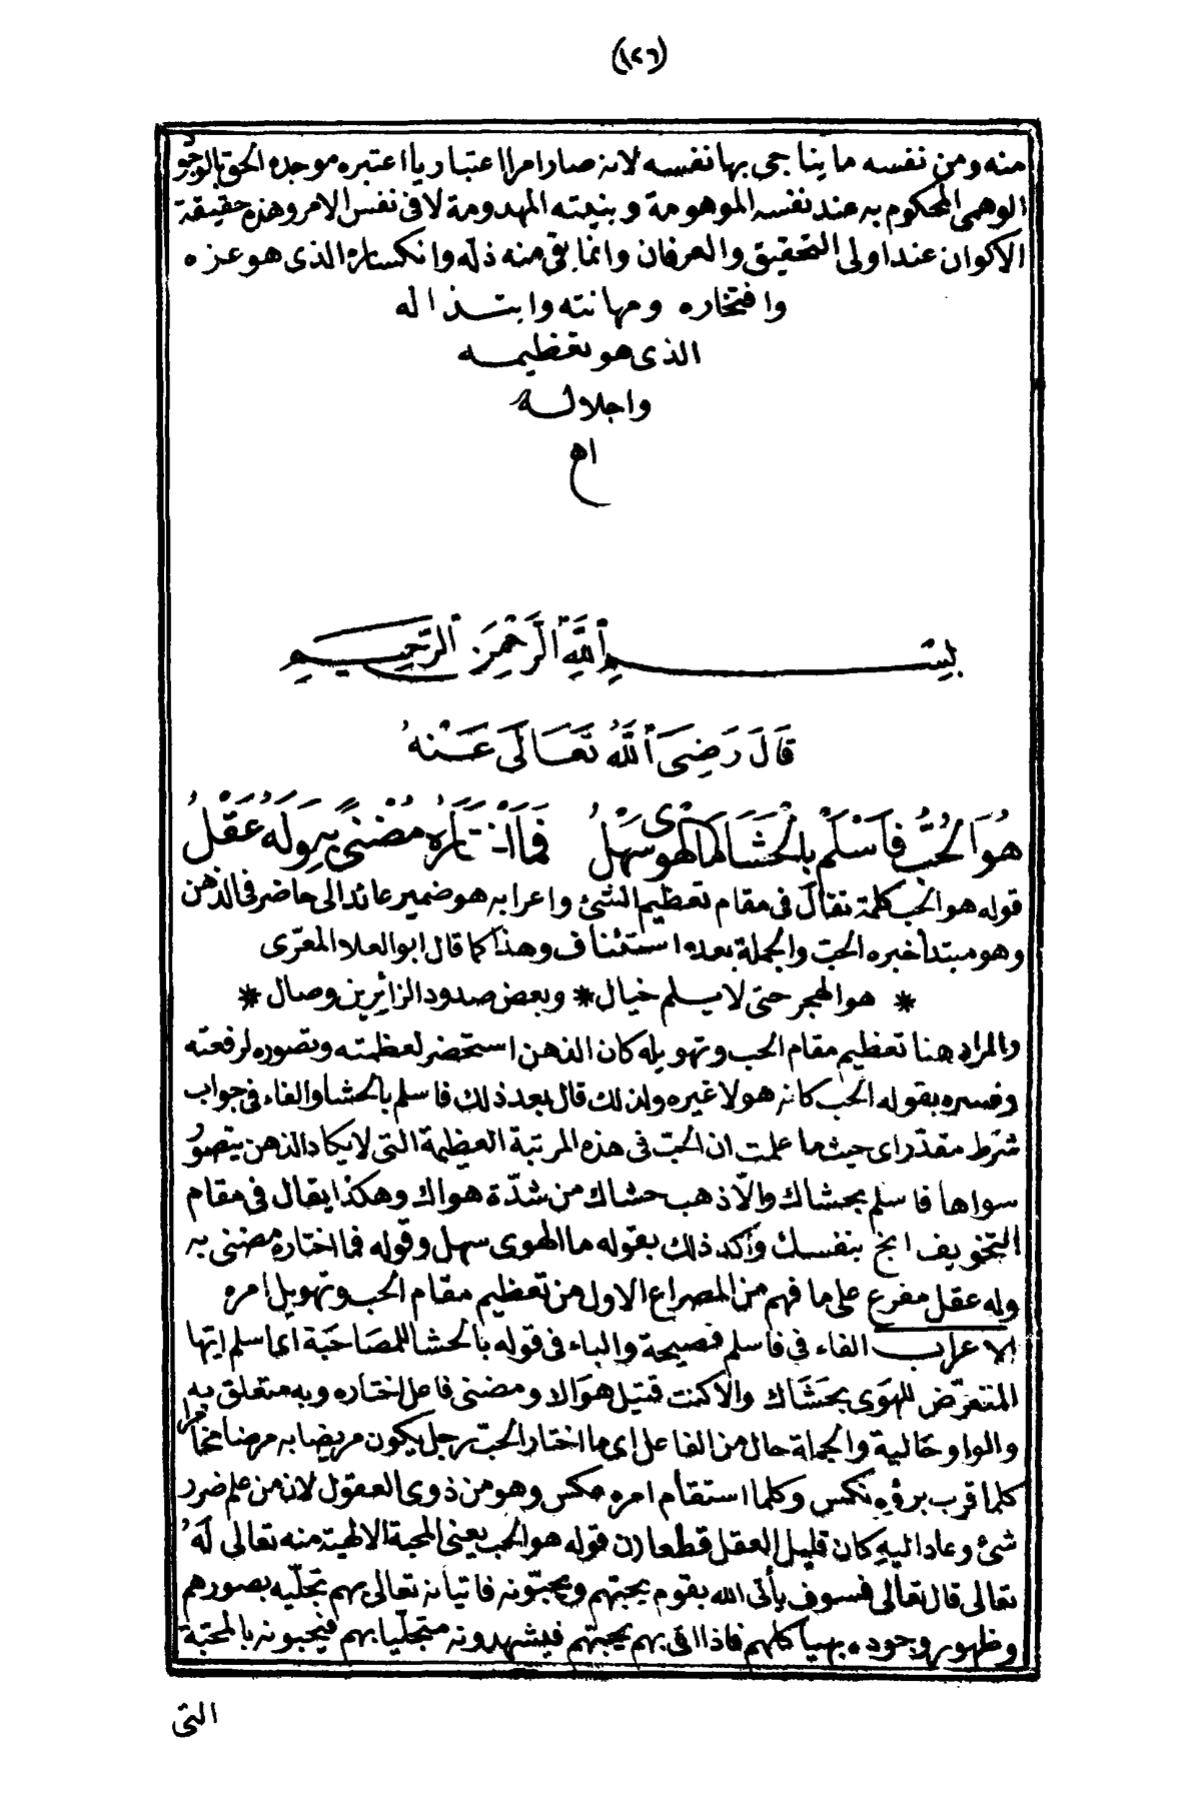 (١٢٦)
منه ومن نفسه ما يناجي بها نفسه لانه صار امرا اعتباريا اعتبره موجده الحق بالوجود
الوهمى المحكوم به عند نفسه الموهومة وبنيته المهدومة لا فى نفس الامر وهذه حقيقة
الاكوان عند اولى التحقيق والعرفان وانما بقى منه ذله وانكساره الذى هو عزه
وافتخاره ومهانته وابتذاله
الذى هو تعظيمه
واجلاله
اه
بِسْمِ اللّٰهِ الرَّحْمٰنِ الرَّحِيمِ
قَالَ رَضِىَ اللّٰهُ تَعَالَى عَنْهُ
هُوَ الْحُبُّ فَاسْلَمْ بِالْحَشَا مَا الْهَوَى سَهْلُ فَمَا اخْتَارَهُ مُضْنًى بِهِ وَلَهُ عَقْلُ
قوله هو الحب كلمة تقال فى مقام تعظيم الشئ واعرابه هو ضمير عائد الى حاضر فى الذهن
وهو مبتدأ خبره الحبّ والجملة بعده استئناف وهذا كما قال ابو العلاء المعرّى
* هو الهجر حتى لا يسلم خيال * وبعض صدود الزائرين وصال *
والمراد هنا تعظيم مقام الحب وتهويله كان الذهن استحضر لعظمته وتصوره لرفعته
وفسره بقوله الحب كانه هو لا غيره ولذلك قال بعد ذلك فاسلم بالحشا والفاء فى جواب
شرط مقدّر اى حيث ما علمت ان الحبّ فى هذه المرتبة العظيمة التى لا يكاد الذهن يتصوّر
سواها فاسلم بحشاك والّا ذهب حشاك من شدّة هواك وهكذا يقال فى مقام
التخويف انج بنفسك وأكد ذلك بقوله ما الهوى سهل وقوله فما اختاره مضنى به
وله عقل مفرع على ما فهم من المصراع الاول من تعظيم مقام الحب وتهويل امره
الاعراب الفاء فى فاسلم فصيحة والباء فى قوله بالحشا للمصَاحَبَة اى اسلم ايّها
المتعرّض للهَوَى بحَشَاك والا كنت قتيل هَوَاك ومضنى فاعل اختاره وبه متعلق به
والواو حَالية والجملة حال من الفاعل اى ما اختار الحبّ رجل يكون مريضا به مرضا مخامرا
كلما قرب برؤه نكس وكلما استقام امره عكس وهو من ذوى العقول لان من علم ضرر
شئ وعاد اليه كان قليل العقل قطعا (ن) قوله هو الحب يعنى المحبة الالهية منه تعالى لَهُ
تعالى قال تعالى فسوف يأتى الله بقوم يحبّهم ويحبّونه فاتيانه تعالى بهم تجلّيه بصورهم
وظهور وجوده بهياكلهم فاذا اتى بهم يحبّهم فيشهدونه متجلّيا بهم فيحبونه بالمحبّة
التى